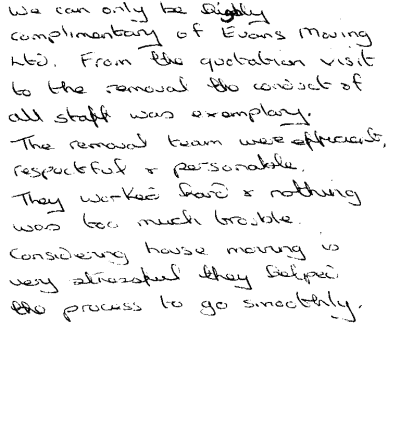 We can only be highly
complimentary of Evans Moving
Ltd. From the quotation visit
to the removal the conduct of
all staff was exemplary.
The removal team were efficient,
respectful & personable.
They worked hard & nothing
was too much trouble.
Considering house moving is
very stressful they helped
the process to go smoothly.